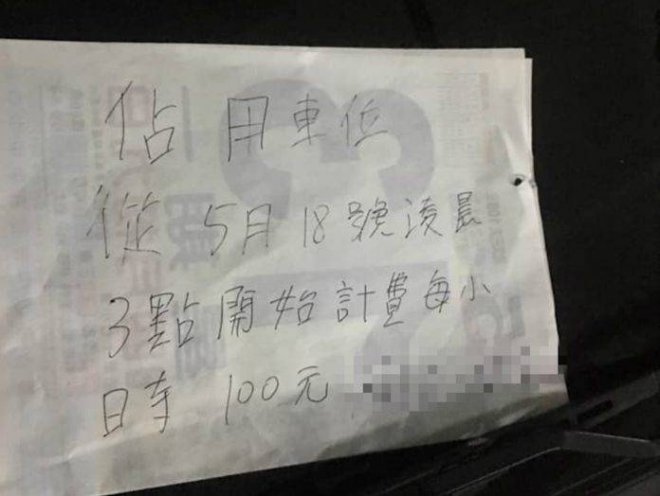 佔用車位
從5月18號淩晨
3點開始計費每小
時100元